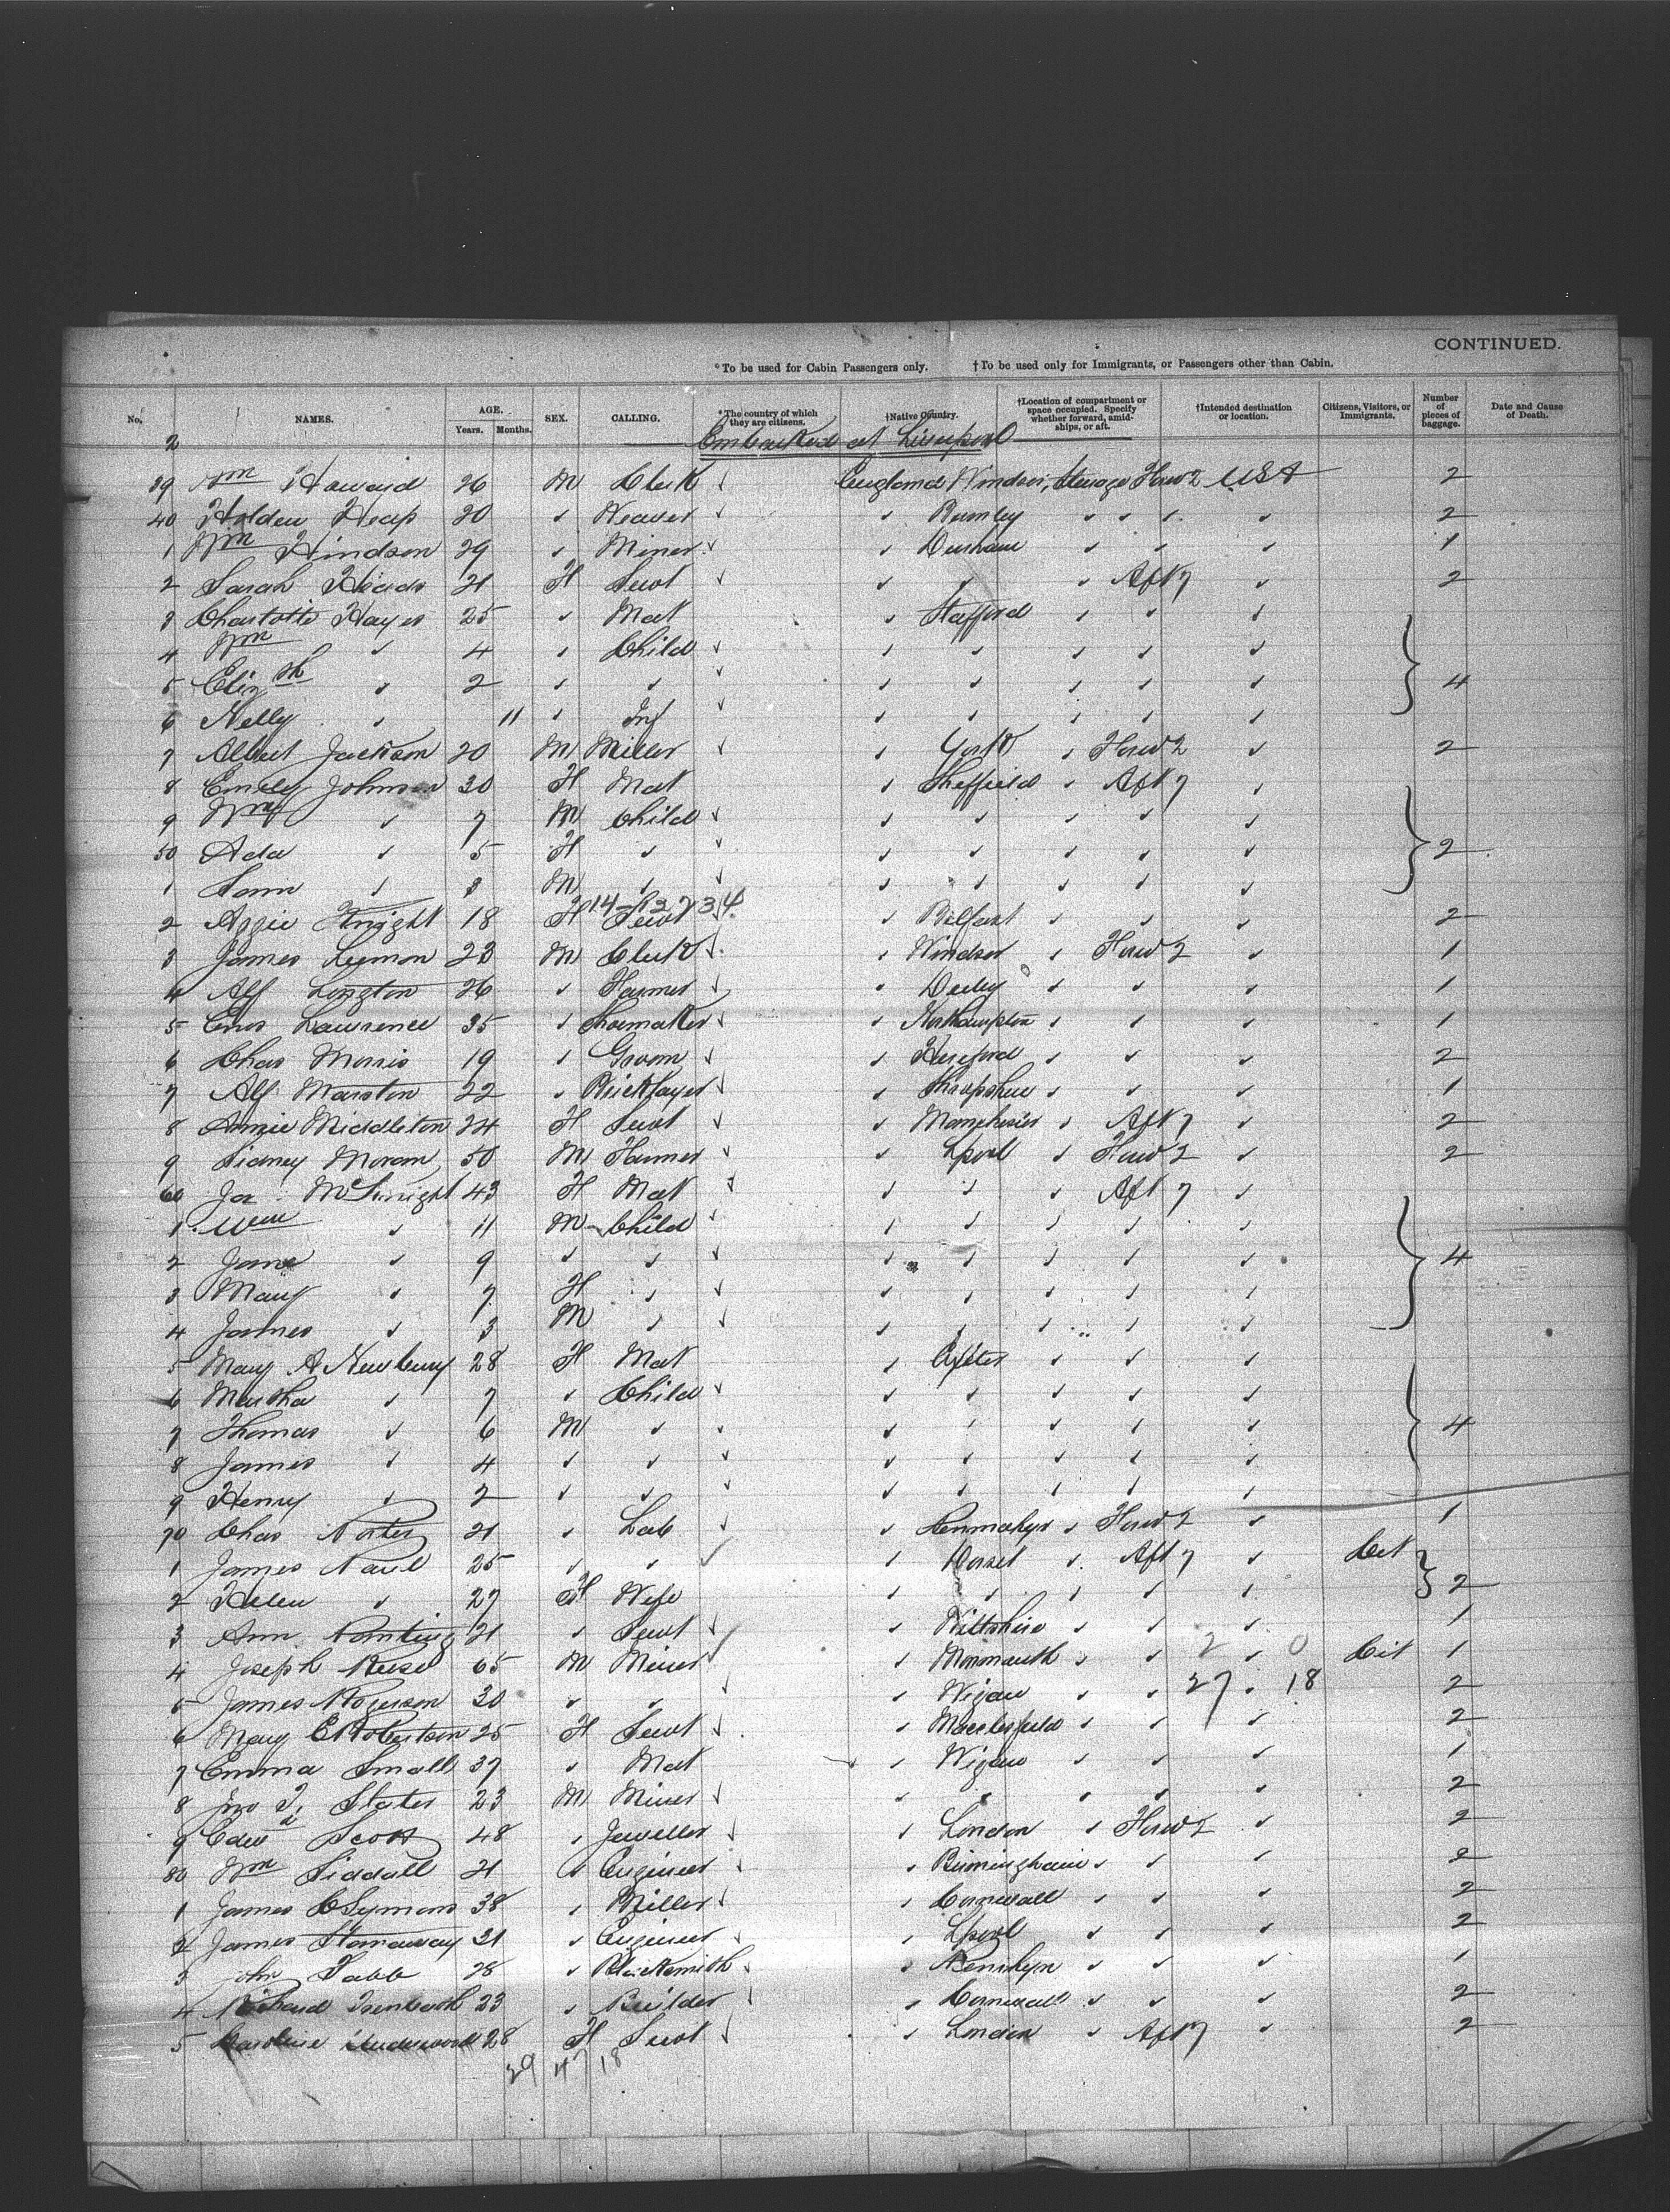 CONTINUED.
*To be used for Cabin Passengers only. †To be used only for Immigrants, or Passengers other than Cabin.
No. NAMES. AGE. Years. Months. SEX. CALLING. *The country of which they are citizens. †Native Country. †Location of compartment or space occupied. Specify whether forward, amidships, or aft. †Intended destination or location. Citizens, Visitors, or Immigrants. Number of pieces of baggage. Date and Cause of Death.
2 Embarked at Liverpool
39 Wm Howard 26 M Clerk ✓ England Windsor, Steerage Forwd 2 USA 2
40 Holden Heap 20 ✓ Weaver ✓ ✓ Burnley ✓ ✓ ✓ ✓ 2
1 Wm Hindson 29 ✓ Miner ✓ ✓ Durham ✓ ✓ ✓ 1
2 Sarah 21 F Servt ✓ ✓ ✓ ✓ Aft 7 ✓ 2
3 Charlotte Hayes 25 ✓ Mat ✓ Stafford ✓ ✓ ✓
4 Wm ✓ 4 ✓ Child ✓ ✓ ✓ ✓ ✓ ✓
5 Elizth ✓ 2 ✓ ✓ ✓ ✓ ✓ ✓ ✓ ✓ 4
6 Nelly ✓ 11 ✓ Inf ✓ ✓ ✓ ✓ ✓ ✓
7 Albert Jackson 20 M Miller ✓ ✓ York ✓ Forwd 2 ✓ 2
8 Emily Johnson 30 F Mat ✓ Sheffield ✓ Aft 7 ✓
9 Wm ✓ 7 M Child ✓ ✓ ✓ ✓ ✓ ✓
50 Ada ✓ 5 F ✓ ✓ ✓ ✓ ✓ ✓ ✓ 2
1 Sam ✓ 3 M ✓ ✓ ✓ ✓ ✓ ✓ ✓
2 Aggie Knight 18 F Servt ✓ Belfast ✓ ✓ ✓ 2
3 James Lemon 23 M Clerk ✓ ✓ Windsor ✓ Forwd 2 ✓ 1
4 Alf Longton 26 ✓ Farmer ✓ ✓ Derby ✓ ✓ ✓ 1
5 Enos Lawrence 35 ✓ Shoemaker ✓ ✓ Northampton ✓ ✓ ✓ 1
6 Chas Morris 19 ✓ Groom ✓ ✓ Hereford ✓ ✓ ✓ 2
7 Alf Marston 22 ✓ Bricklayer ✓ ✓ Shropshire ✓ ✓ ✓ 1
8 Annie Middleton 24 F Servt ✓ ✓ Manchester ✓ Aft 7 ✓ 2
9 Sidney Moram 50 M Farmer ✓ Lpool ✓ Forwd 2 ✓ 2
60 43 F Mat ✓ ✓ ✓ ✓ Aft 7 ✓
1 Wm ✓ 11 M Child ✓ ✓ ✓ ✓ ✓ ✓
2 Jane ✓ 9 ✓ ✓ ✓ ✓ ✓ ✓ ✓ 4
3 Mary ✓ 7 F ✓ ✓ ✓ ✓ ✓ ✓ ✓
4 James ✓ 3 M ✓ ✓ ✓ ✓ ✓ ✓ ✓
5 Mary A Newbury 28 F Mat ✓ Exeter ✓ ✓ ✓
6 Martha ✓ 7 ✓ Child ✓ ✓ ✓ ✓ ✓ ✓
7 Thomas ✓ 6 M ✓ ✓ ✓ ✓ ✓ ✓ ✓ 4
8 James ✓ 4 ✓ ✓ ✓ ✓ ✓ ✓ ✓ ✓
9 Henry ✓ 2 ✓ ✓ ✓ ✓ ✓ ✓ ✓ ✓
70 Chas 21 ✓ Lab ✓ ✓ ✓ Forwd 2 ✓ 1
1 James 25 ✓ ✓ ✓ ✓ Dorset ✓ Aft 7 ✓ Cit
2 Helen ✓ 27 F Wife ✓ ✓ ✓ ✓ ✓ 2
3 Ann 21 ✓ Servt ✓ ✓ Wiltshire ✓ ✓ ✓ 1
4 Joseph Reese 65 M Miner ✓ ✓ Monmouth ✓ ✓ 2 ✓ 0 Cit 1
5 James Rogerson 30 ✓ ✓ ✓ ✓ Wigan ✓ ✓ 27 ✓ 18 2
6 Mary E Robertson 25 F Servt ✓ ✓ Macclesfield ✓ ✓ ✓ 2
7 Emma Small 37 ✓ Mat ✓ Wigan ✓ ✓ ✓ 1
8 Jno T. Slater 23 M Miner ✓ ✓ ✓ ✓ ✓ ✓ 2
9 Edwd Scott 48 ✓ Jeweller ✓ ✓ London ✓ Forwd 2 ✓ 2
80 Wm Siddall 21 ✓ Engineer ✓ ✓ Birmingham ✓ ✓ ✓ 2
1 James C Symons 38 ✓ Miller ✓ ✓ Cornwall ✓ ✓ ✓ 2
2 James Stanaway 31 ✓ Engineer ✓ ✓ Lpool ✓ ✓ ✓ 2
3 John Tabb 28 ✓ Blacksmith ✓ ✓ ✓ ✓ ✓ 1
4 Richard 23 ✓ Builder ✓ ✓ Cornwall ✓ ✓ ✓ 2
5 Caroline Underwood 28 F Servt ✓ ✓ London ✓ Aft 7 ✓ 2
29 18